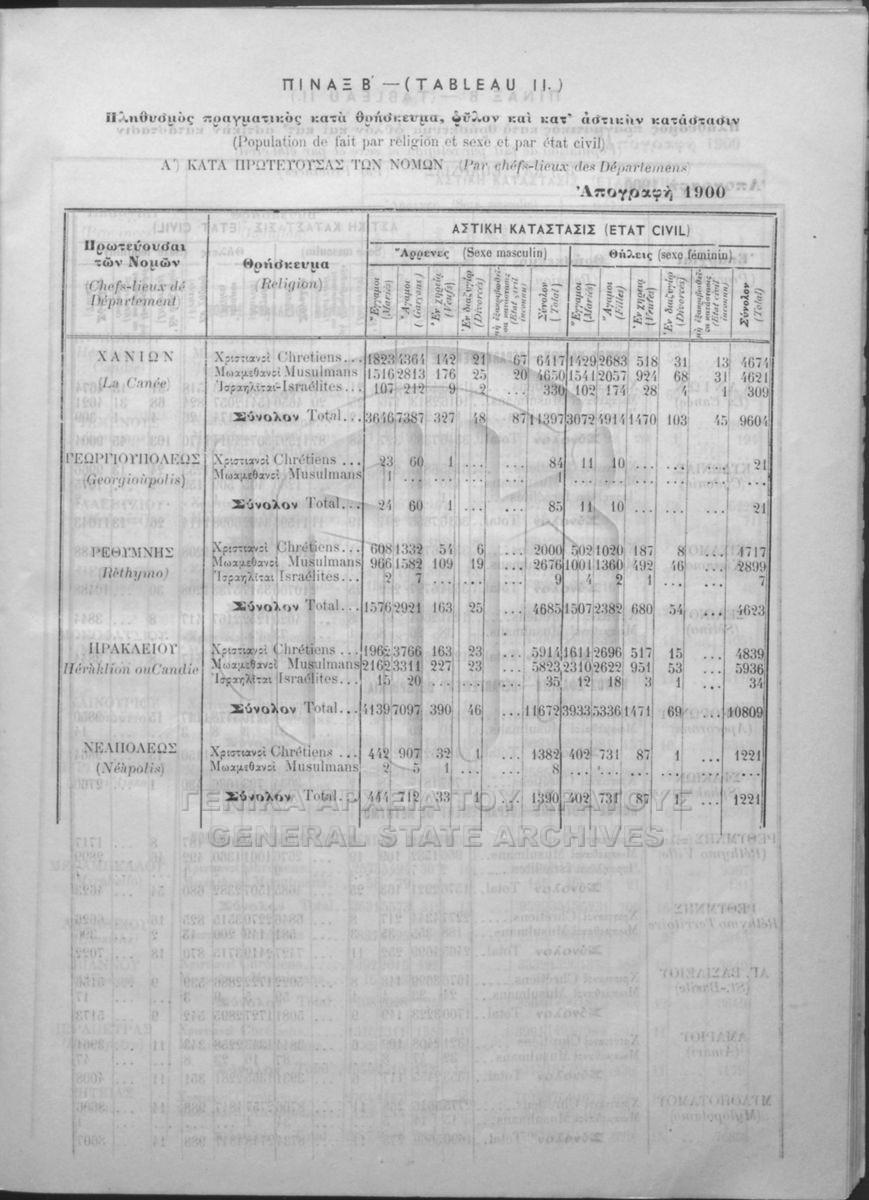 ΠΙΝΑΞ Β΄ — (TABLEAU II.)
Πληθυσμὸς πραγματικὸς κατὰ θρήσκευμα, φῦλον καὶ κατ' ἀστικὴν κατάστασιν
(Population de fait par religion et sexe et par état civil)
Α΄) ΚΑΤΑ ΠΡΩΤΕΥΟΥΣΑΣ ΤΩΝ ΝΟΜΩΝ (Par chéfs-lieux des Départemens)
Ἀπογραφὴ 1900
Πρωτεύουσαι τῶν Νομῶν (Chefs-lieux dé Département)
Θρήσκευμα (Religion)
ΑΣΤΙΚΗ ΚΑΤΑΣΤΑΣΙΣ (ETAT CIVIL)
Ἄρρενες (Sexe masculin) Θήλεις (sexe féminin)
Ἔγγαμοι (Mariés) Ἄγαμοι (Garçons) Ἐν χηρείᾳ (Veufs) Ἐν διαζυγίῳ (Divorcés) (Etat civil inconnu) Σύνολον (Total) Ἔγγαμοι (Mariés) Ἄγαμοι (Filles) Ἐν χηρείᾳ (Veufs) Ἐν διαζυγίῳ (Divorcés) (Etat civil inconnu) Σύνολον (Total)
ΧΑΝΙΩΝ Χριστιανοὶ Chretiens... 1823 4364 142 21 67 6417 1429 2683 518 31 13 4674
(La Canée) Μωαμεθανοὶ Musulmans 1516 2813 176 25 20 4650 1541 2057 924 68 31 4621
Ἰσραηλῖται-Israélites... 107 212 9 2 ... 330 102 174 28 4 1 309
Σύνολον Total... 3646 7387 327 48 87 11397 3072 4914 1470 103 45 9604
ΓΕΩΡΓΙΟΥΠΟΛΕΩΣ Χριστιανοὶ Chrétiens ... 23 60 1 ... ... 84 11 10 ... ... ... 21
(Georgioùpolis) Μωαμεθανοὶ Musulmans 1 ... ... ... ... 1 ... ... ... ... ... ...
Σύνολον Total... 24 60 1 ... ... 85 11 10 ... ... ... 21
ΡΕΘΥΜΝΗΣ Χριστιανοὶ Chrétiens... 608 1332 54 6 ... 2000 502 1020 187 8 ... 1717
Réthymo) Μωαμεθανοὶ Musulmans 966 1582 109 19 ... 2676 1001 1360 492 46 ... 2899
Ἰσραηλῖται Israélites... 2 7 ... ... ... 9 4 2 1 ... ... 7
Σύνολον Total... 1576 2921 163 25 ... 4685 1507 2382 680 54 ... 4623
ΗΡΑΚΛΕΙΟΥ Χριστιανοὶ Chrétiens ... 1962 3766 163 23 ... 5914 1611 2696 517 15 ... 4839
Hèràklion ou Candie Μωαμεθανοὶ Musulmans 2162 3311 227 23 ... 5823 2310 2622 951 53 ... 5936
Ἰσραηλῖται Israélites... 15 20 ... ... ... 35 12 18 3 1 ... 34
Σύνολον Total... 4139 7097 390 46 ... 11672 3933 5336 1471 69 ... 10809
ΝΕΑΠΟΛΕΩΣ Χριστιανοὶ Chrétiens ... 442 907 32 1 ... 1382 402 731 87 1 ... 1221
(Néàpolis) Μωαμεθανοὶ Musulmans 2 5 1 ... ... 8 ... ... ... ... ... ...
Σύνολον Total... 444 712 33 ... 1390 402 731 87 1 ... 1221
ΓΕΝΙΚΑ ΑΡΧΕΙΑ ΤΟΥ ΚΡΑΤΟΥΣ
GENERAL STATE ARCHIVES